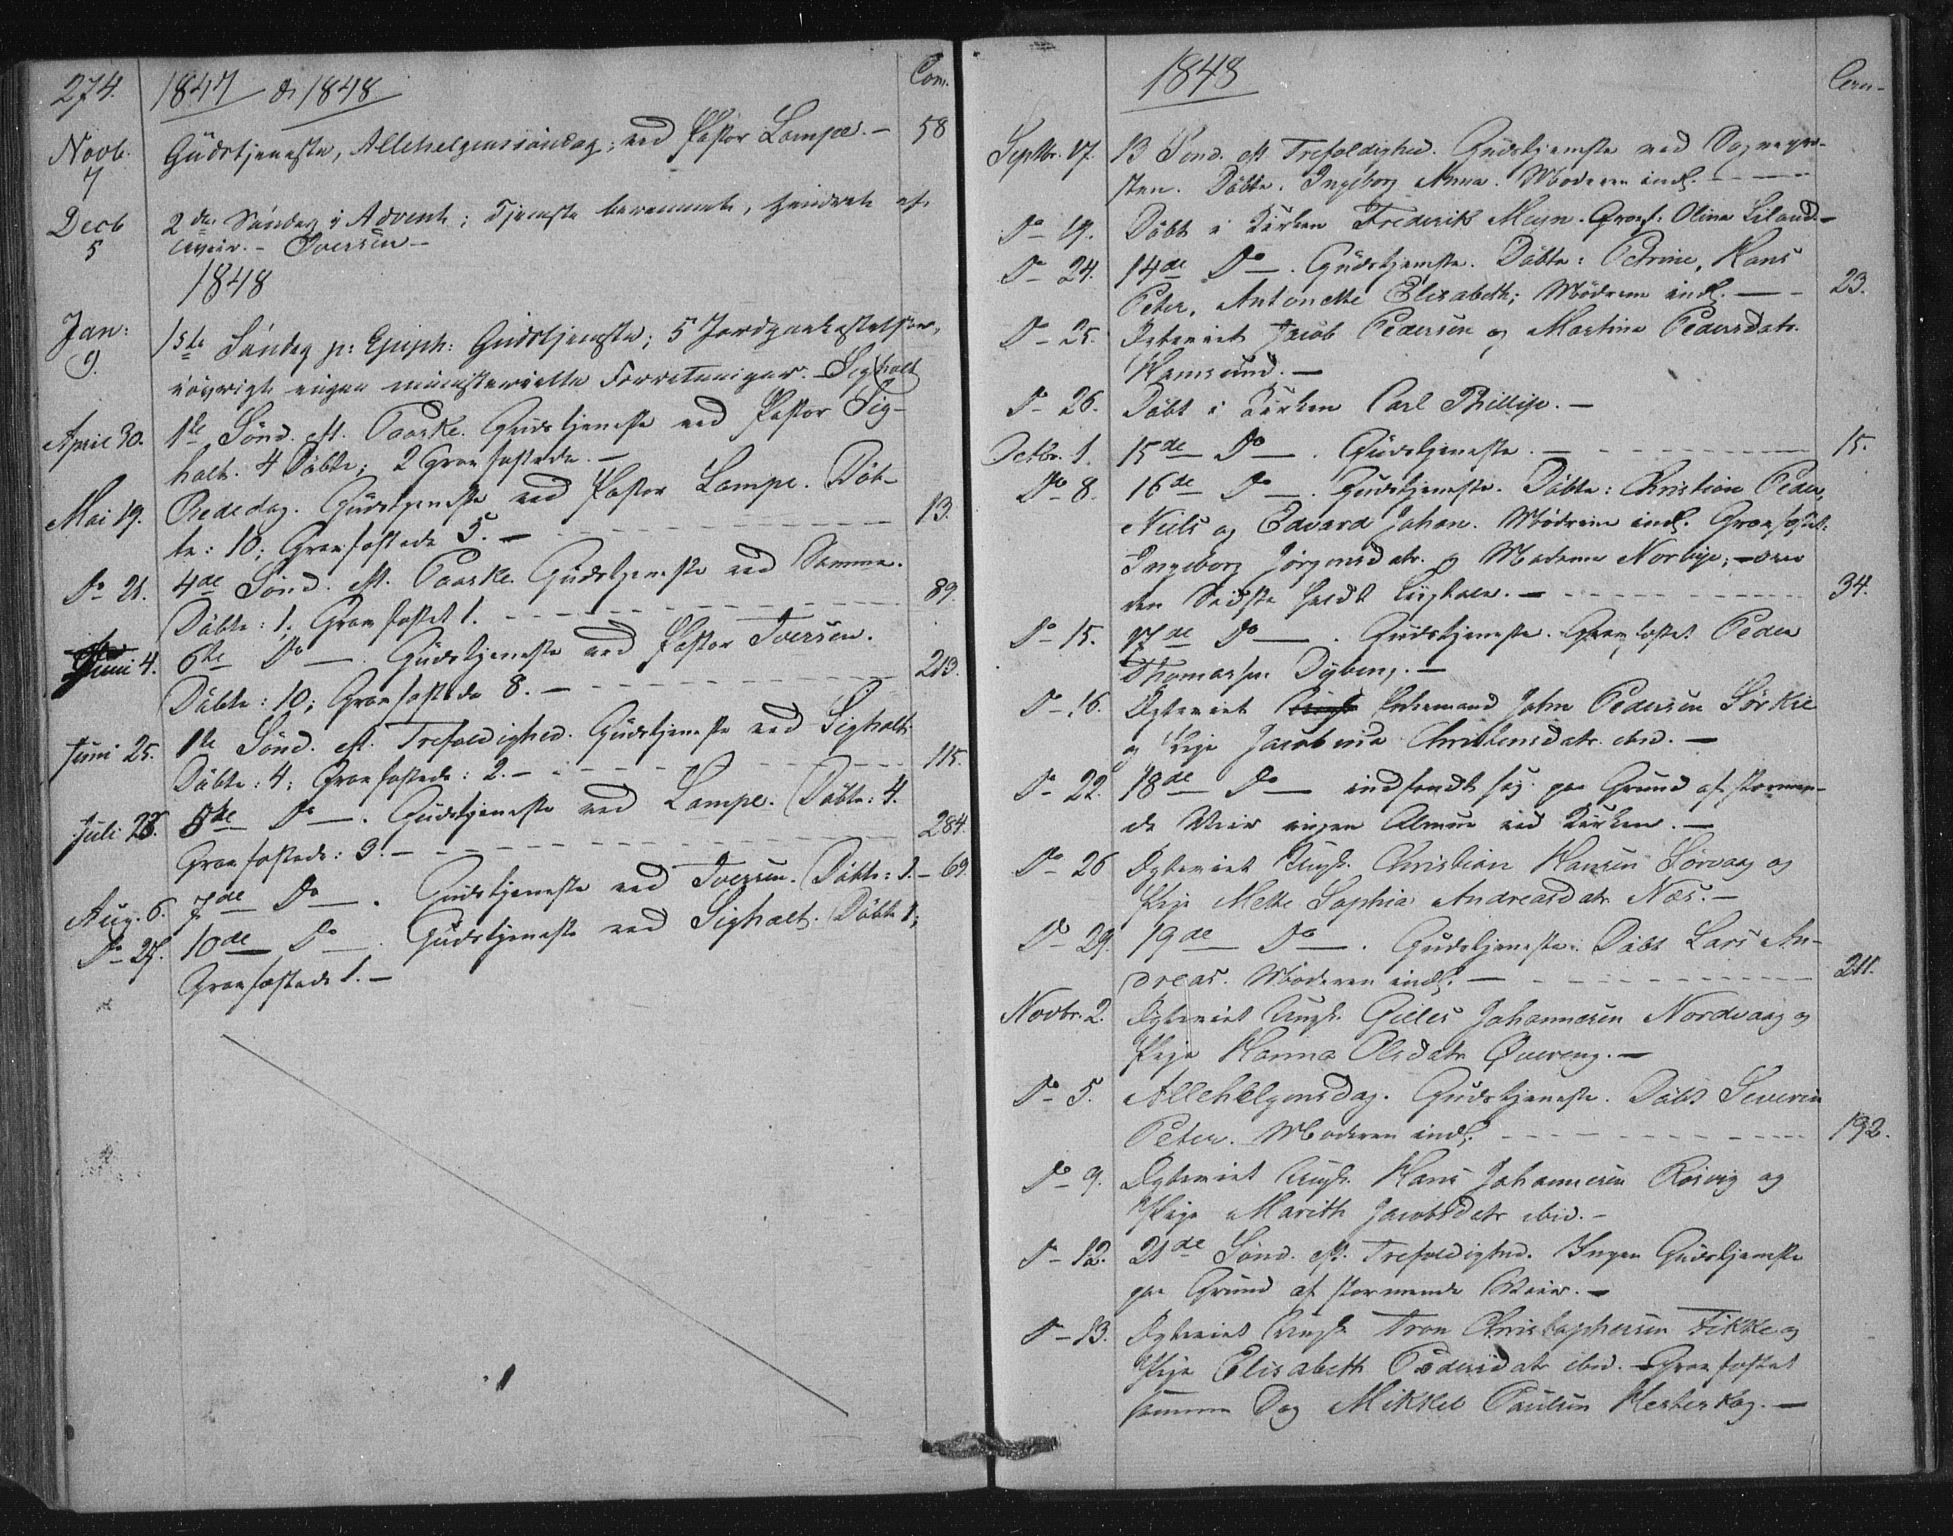 274. 1847 & 1848 Com.
Novb. 7 Gudstjeneste, Allehelgenssöndag; ved Pastor Lampe. — 58
Decb 5 2den Söndag i Advent; Tjeneste berammet, hindret af
Iversen —
1848
Jan: 9. 1ste Söndag p: Epiph: Gudstjeneste; 5 Jordpaakastelser,
iövrigt ingen ministerielle Forretninger. — Sigholt
April 30. 1ste Sönd. eft. Paaske. Gudstjeneste ved Pastor Sig-
holt. 4 Döbte; 2 Gravfæstede. —
Mai 19. Bededag. Gudstjeneste ved Pastor Lampe. Döb-
te: 10; Gravfæstede 5. — 13.
Do 21. 4de Sönd. eft. Paaske. Gudstjeneste ved Samme.
Döbte: 1. Gravfæstet 1. 89.
Juni 4. 6te Do — . Gudstjeneste ved Pastor Iversen.
Döbte: 10; Gravfæstede 8. — 213.
Juni 25. 1ste Sönd. eft. Trefoldighed. Gudstjeneste ved Sigholt.
Döbte: 4; Gravfæstede: 2. — 115.
Juli 23. 5te Do — . Gudstjeneste ved Lampe. Döbte: 4.
Gravfæstede: 3. — 284.
Aug. 6. 7de Do — . Gudstjeneste ved Iversen. Döbte: 1. — 69.
Do 27. 10de Do — . Gudstjeneste ved Sigholt. Döbt 1;
Gravfæstede 1. —
1848 Com-
Septbr. 17. 13 Sönd. eft. Trefoldighed. Gudstjeneste ved Sognepræ-
sten. Döbte: Ingeborg Anna. Moderen indl. —
Do 19. Döbt i Kirken Frederik Meyn. Gravf: Olina Liland. —
Do 24. 14de Do — . Gudstjeneste. Döbte: Petrine, Hans
Peter, Antonette Elisabeth; Mödrene indl. — 23.
Do 25. Egteviet Jacob Pedersen og Martine Pedersdatr.
Hamsund. —
Do 26. Döbt i Kirken Carl Phillip. —
Octbr. 1. 15de Do — . Gudstjeneste. — 15.
Do 8. 16de Do — . Gudstjeneste. Döbte: Christian Peder,
Niels og Edvard Johan. Mödrene indl. Gravfæstet:
Ingeborg Jörgensdatr. og Madame Norbye; — over
den Sidste holdt Ligtale. — 34.
Do 15. 17de Do — . Gudstjeneste. Gravfæstet Peder
Thomassen Dyberg. —
Do 16. Egteviet Enkemand John Pedersen Sörkil
og Pige Jacobina Christensdatr. ibid. —
Do 22. 18de Do — indfandt sig paa Grund af stormen-
de Veir ingen Almue ved Kirken. —
Do 26 Egteviet Ungk. Christian Hansen Sörvaag og
Pige Mette Sophia Andreasdatr. Næs. —
Do 29. 19de Do — . Gudstjeneste. Döbt Lars An-
dreas. Moderen indl. — 211.
Novbr. 2. Egteviet Ungk. Gilles Johannesen Nordvaag og
Pige Hanna Olsdatr Övereng. —
Do 5. Allehelgensdag. Gudstjeneste. Döbt Severin
Peter. Moderen indl. 192.
Do 9. Egteviet Ungk. Hans Johannesen Rösvig og
Pige Marith Jacobsdatr ibid. —
Do 12. 21de Sönd. eft. Trefoldighed. Ingen Gudstjeneste
paa Grund af stormende Veir. —
Do 13. Egteviet Ungk. Tron Christophersen Fikke og
Pige Elisabeth Pedersdatr ibid. — Gravfæstet
samme Dag Mikkel Paulsen Hesteskog. —